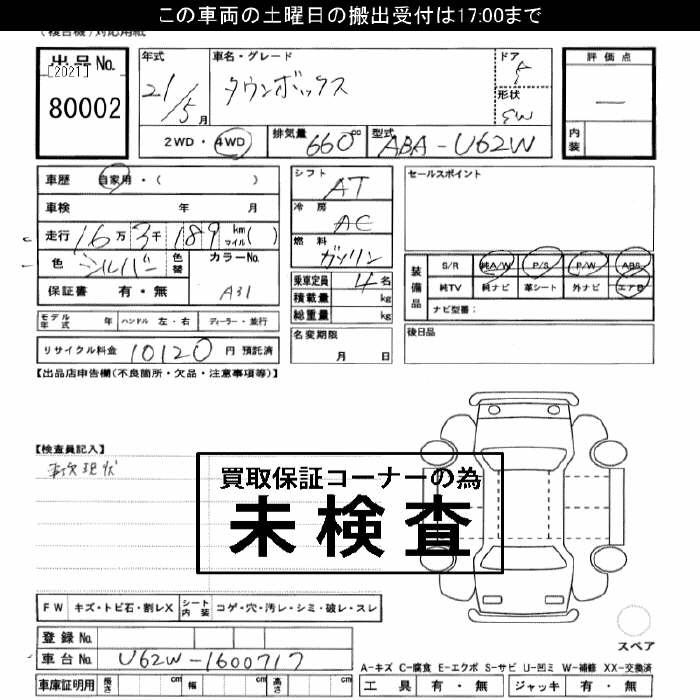 この車両の土曜日の搬出受付は17:00まで
(複合機)対応用紙
出品No. [2021] 80002
年式 21/5月
車名・グレード タウンボックス
ドア 5
形状 SW
評価点 —
内装
2WD・4WD 排気量 660cc 型式 ABA-U62W
車歴 自家用・( )
車検 年 月
走行 16万3千189km マイル( )
色 シルバー 色替 カラーNo. A31
保証書 有・無
モデル年式 年 ハンドル 左・右 ディーラー・並行
リサイクル料金 10120円 預託済
シフト AT
冷房 AC
燃料 ガソリン
乗車定員 4名
積載量 kg
総重量 kg
名変期限 月 日
セールスポイント
装備品 S/R 純A/W P/S P/W ABS
純TV 純ナビ 革シート 外ナビ エアB
ナビ型番:
後日品
【出品店申告欄(不良箇所・欠品・注意事項等)】
【検査員記入】
事故現状
買取保証コーナーの為
未検査
FW キズ・トビ石・割レX シート内装 コゲ・穴・汚レ・シミ・破レ・スレ
登録No.
車台No. U62W-1600717
車庫証明用 長さ cm 幅 cm 高さ cm
スペア
A-キズ C-腐食 E-エクボ S-サビ U-凹ミ W-補修 XX-交換済
工具 有・無 ジャッキ 有・無